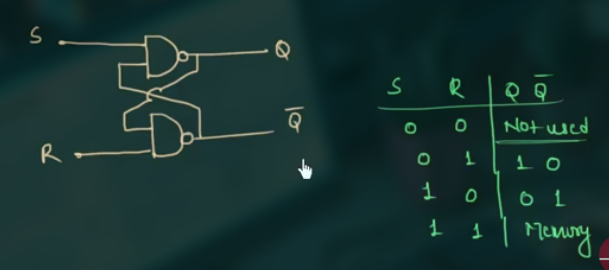 S
Q
Q̅
R
S R Q Q̅
0 0 Not used
0 1 1 0
1 0 0 1
1 1 Memory